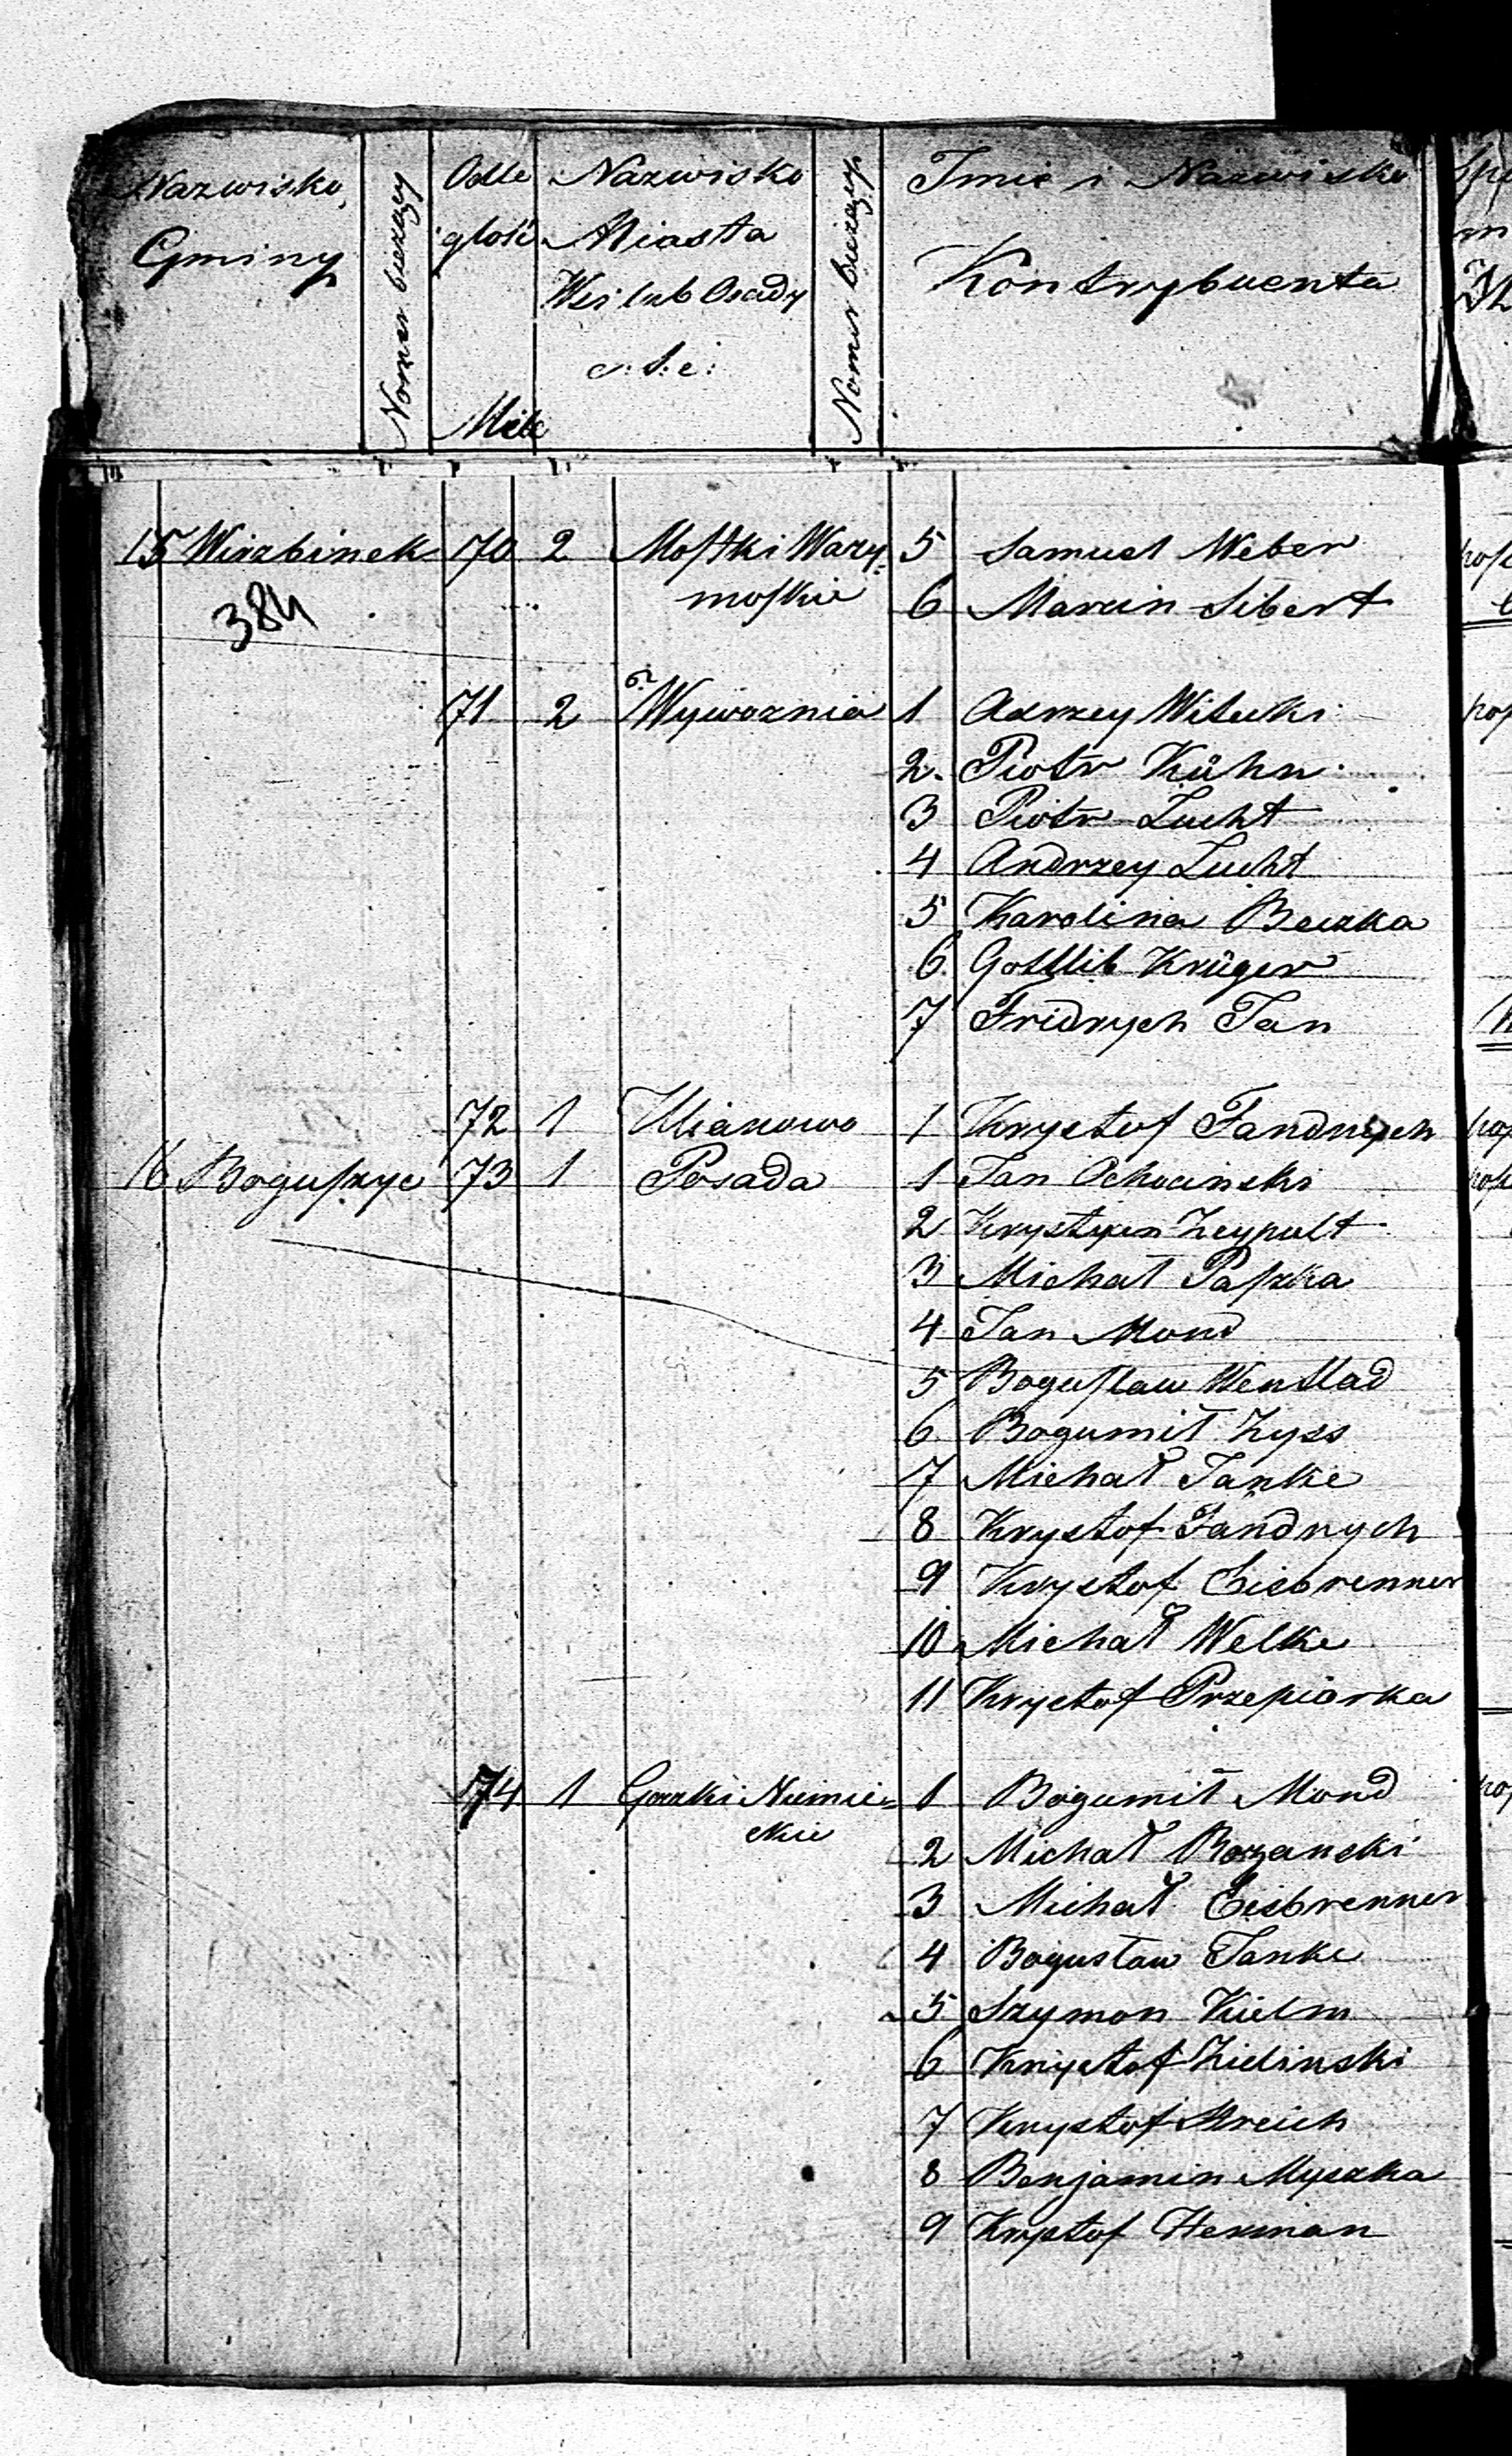 Nazwisko Gminy
Nomer bieżący
Odległość Mile
Nazwisko Miasta Wsi lub Osady
Nomer bieżący
Imie i Nazwisko Kontrybuenta
15 Wirzbinek 70 2 Mostki Wazy= 5 Samuel Weber
384 moskie 6 Marcin Sibert
71 2 Wywoznia 1 Adrzey Witecki
2. Piotr Kühn
3 Piotr Lucht
4 Andrzey Lucht
5 Karolina Beczka
6. Gottlib Krüger
7 Fridrych Jan
72 1 1 Krystof Fandrych
16 Boguszyc 73 1 Posada 1 Jan Ochocinski
2 Krystyan Leypolt
3 Michał Paszka
4 Jan Mond
5 Bogusław Wentlad
6 Bogumił Zyss
7 Michał Janke
8 Krystof Fandrych
9 Krystof Eisbrenner
10 Michał Welke
11 Krystof Przepiorka
74 1 Niemie= 1 Bogumił Mond
ckie
2 Michał
3 Michał Eisbrenner
4 Bogusław Janke
5 Szymon Kielm
6 Krystof Zielinski
7 Krystof Streich
8 Benjamin Myszka
9 Krystof Herman